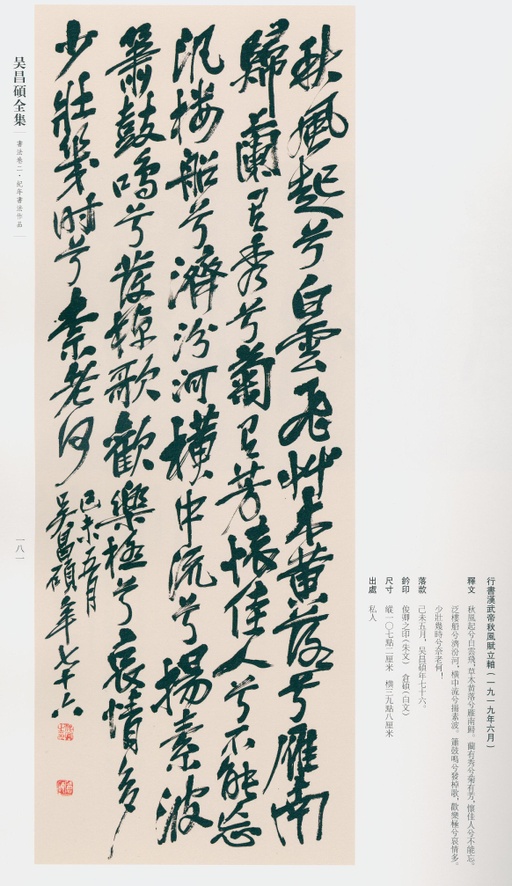 行書漢武帝秋風賦立軸(一九一九年六月)
釋文 秋風起兮白雲飛,草木黄落兮雁南歸。蘭有秀兮菊有芳,懷佳人兮不能忘。
泛樓船兮濟汾河,横中流兮揚素波。簫鼓鳴兮發棹歌,歡樂極兮哀情多。
少壯幾時兮奈老何!
落款 己未五月,吴昌碩年七十六。
鈐印 俊卿之印(朱文) 倉碩(白文)
尺寸 縱一〇七點二厘米 横三九點八厘米
出處 私人
秋風起兮白雲飛艸木黄落兮雁南
歸蘭有秀兮菊有芳懷佳人兮不能忘
汎楼船兮濟汾河横中流兮揚素波
簫鼓鳴兮發棹歌歡樂極兮哀情多
少壯幾時兮柰老何
己未五月
吴昌碩年七十六
吴昌碩全集
書法卷二·紀年書法作品
一八一